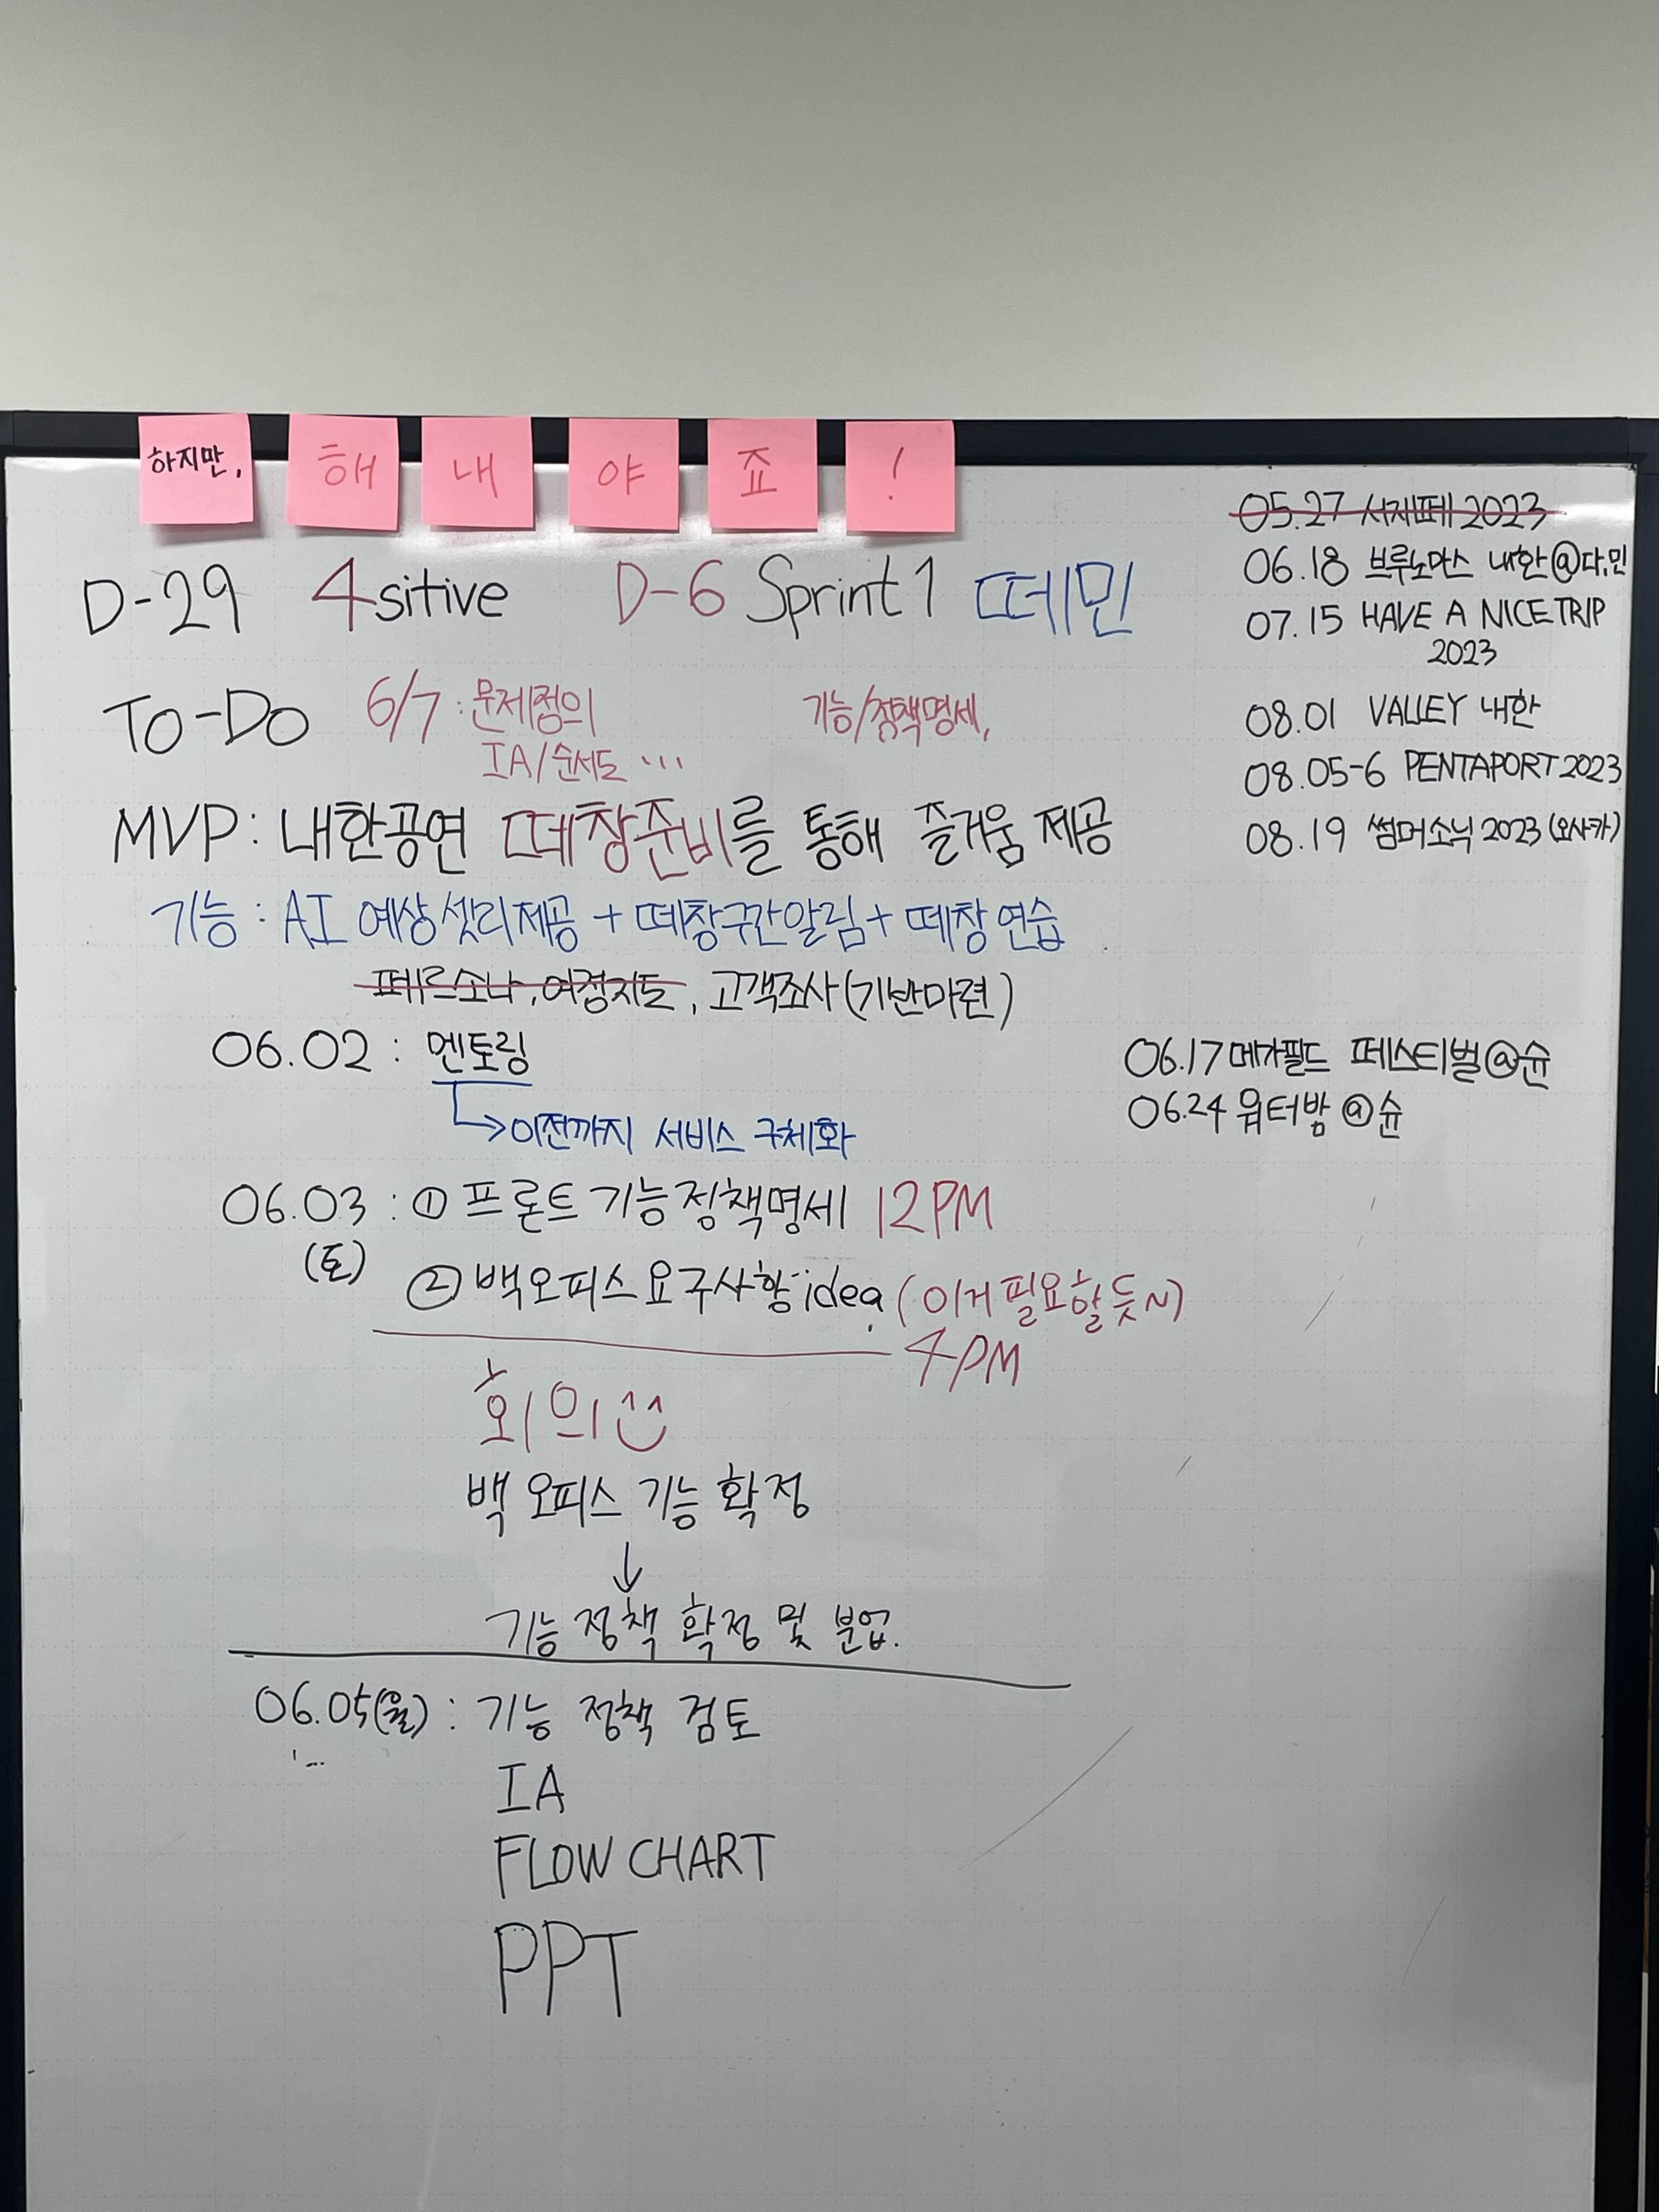 하지만, 해 내 야 죠 !
D-29 4sitive D-6 Sprint 1 떼민
To-Do 6/7 : 문제정의 기능/정책명세,
IA/순서도 ...
MVP : 내한공연 떼창준비를 통해 즐거움 제공
기능 : AI 예상셋리제공 + 떼창구간알림 + 떼창연습
페르소나, 여정지도, 고객조사(기반마련)
06.02 : 멘토링
→이전까지 서비스 구체화
06.03 : ① 프론트 기능정책명세 12PM
(토)
② 백오피스 요구사항 idea (이거 필요할듯~)
4PM
회의
백오피스 기능 확정
↓
기능 정책 확정 및 분업.
06.05(월) : 기능 정책 검토
IA
FLOW CHART
PPT
05.27 서재페 2023
06.18 브루노마스 내한@다,민
07.15 HAVE A NICE TRIP
2023
08.01 VALLEY 내한
08.05-6 PENTAPORT 2023
08.19 썸머소닉 2023 (오사카)
06.17 메가필드 페스티벌@슌
06.24 워터밤 @슌